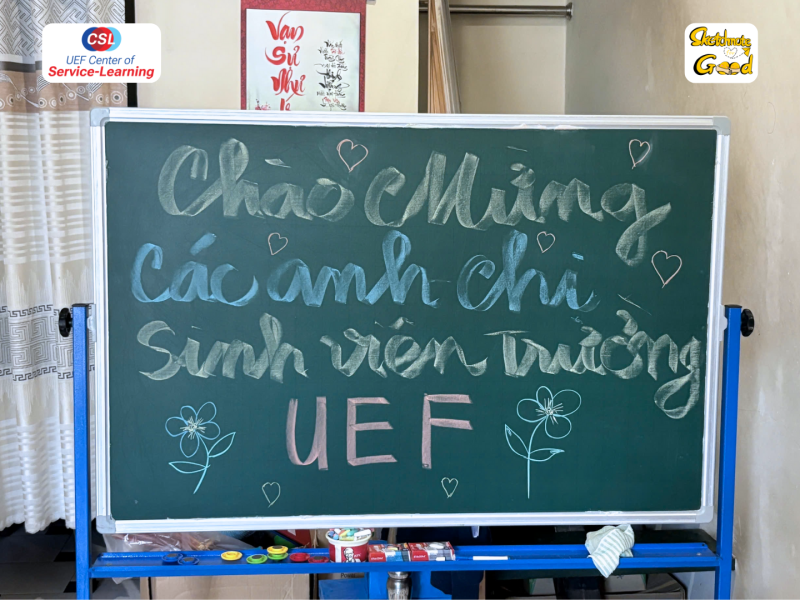 CSL
UEF Center of
Service-Learning
Sketchnote
Good
Vạn
Sự
Như
Chào Mừng
Các anh chị
Sinh viên Trường
UEF